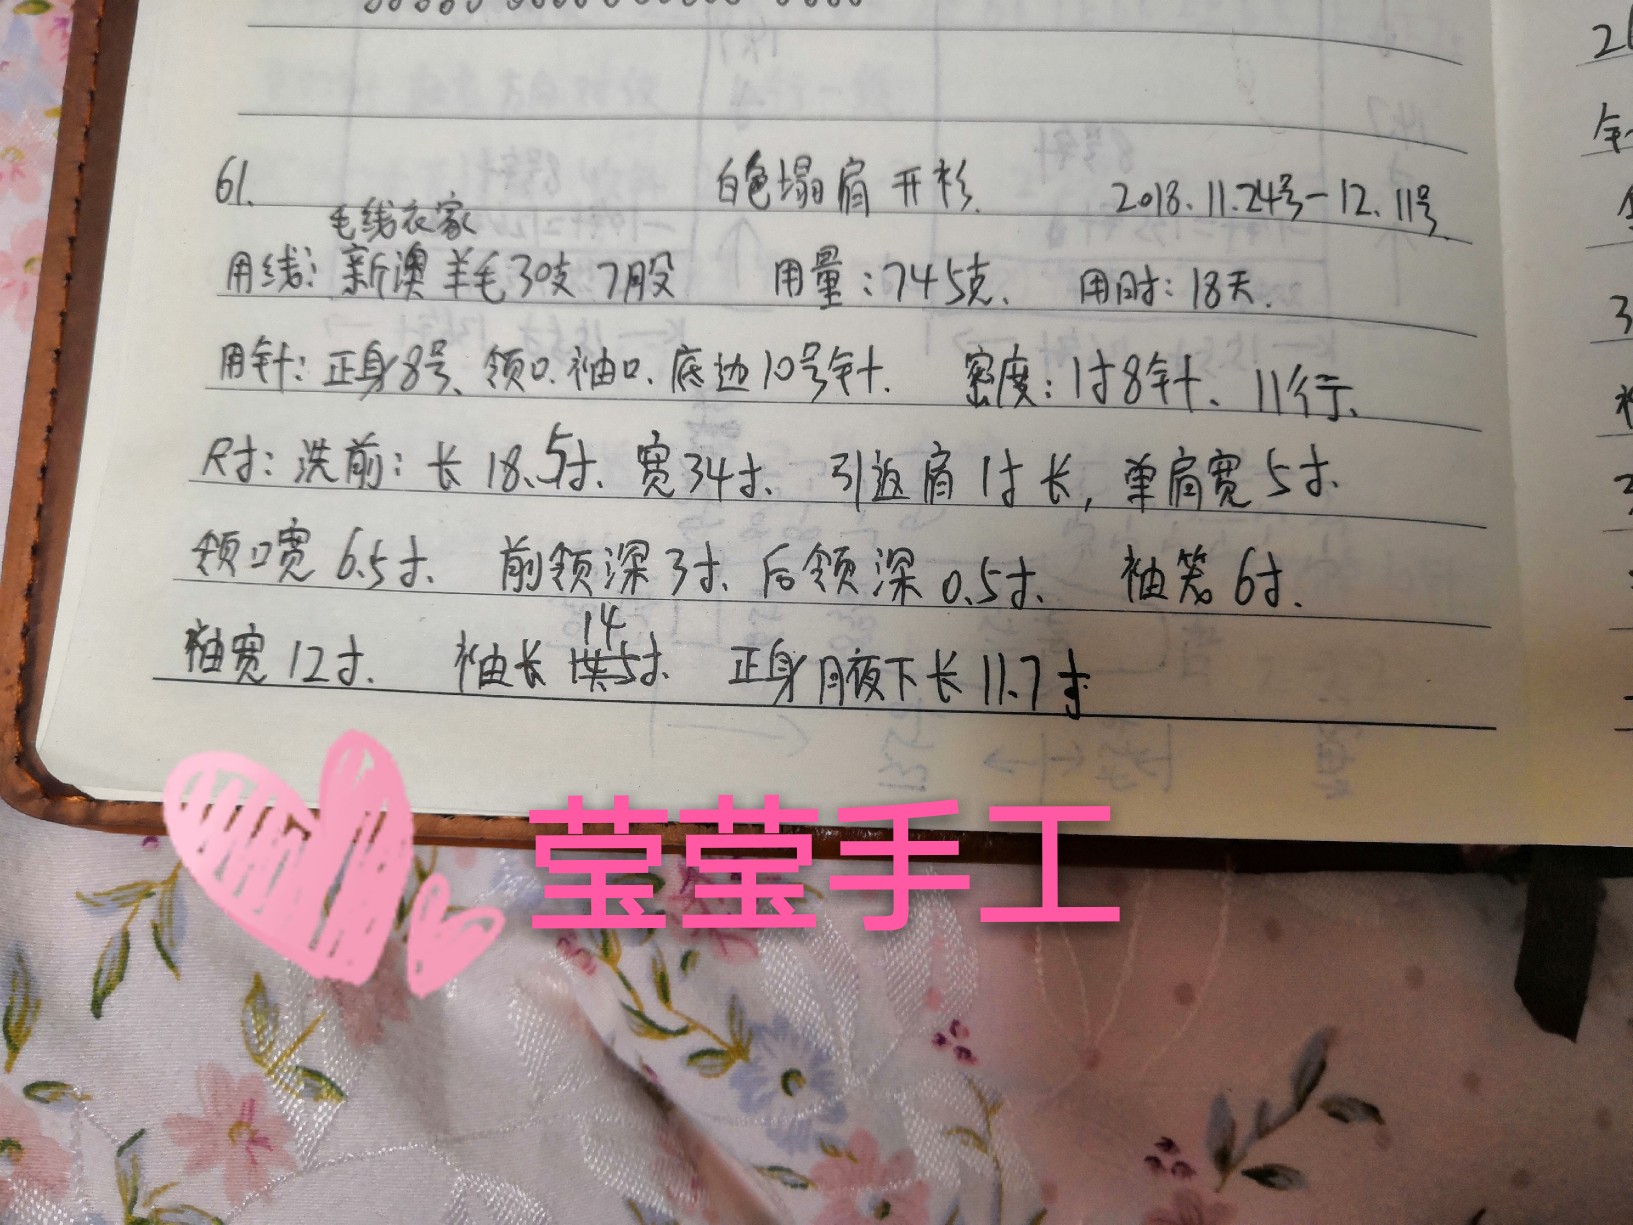 61. 白色塌肩开衫. 2018.11.24号-12.11号
毛线衣家
用线: 新澳羊毛30支7股 用量:745克. 用时:18天.
用针:正身8号、领口.袖口.底边10号针. 密度:1寸8针、11行、
尺寸:洗前:长18.5寸、宽34寸、引返肩1寸长,单肩宽5寸.
领口宽6.5寸、前领深3寸、后领深0.5寸、袖笼6寸.
袖宽12寸. 袖长14寸. 正身腋下长11.7寸
莹莹手工